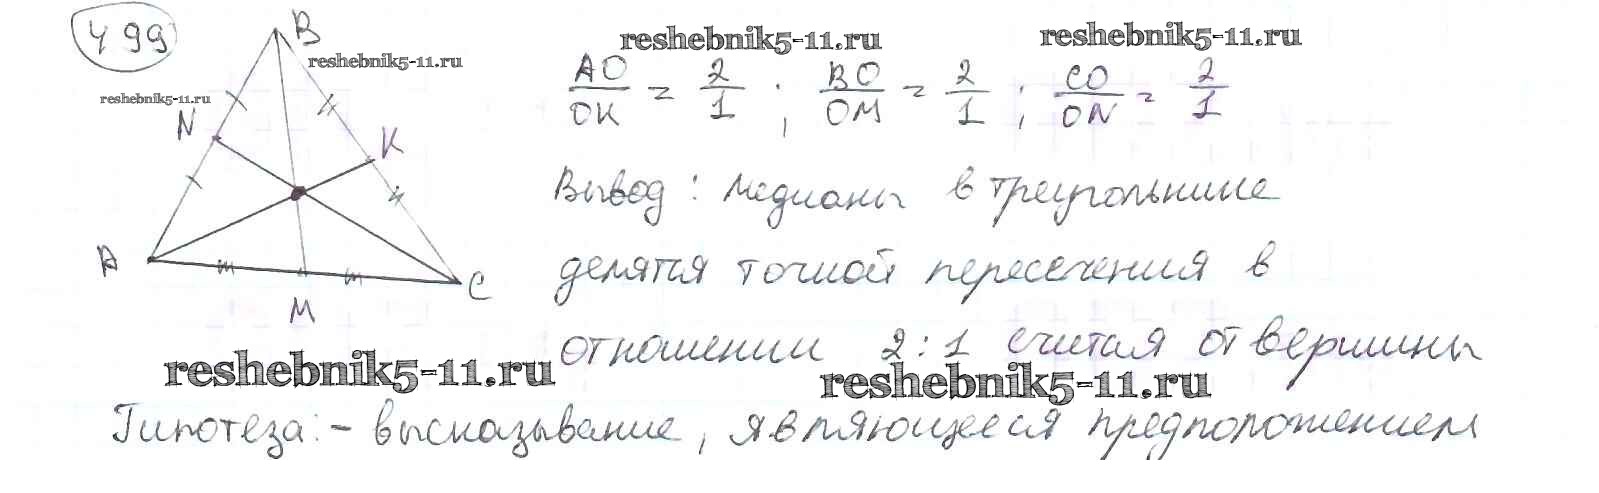 499
B
reshebnik5-11.ru
reshebnik5-11.ru
reshebnik5-11.ru
reshebnik5-11.ru
N
K
A
C
M
AO/OK = 2/1 ; BO/OM = 2/1 ; CO/ON = 2/1
Вывод: медианы в треугольнике
делятся точкой пересечения в
отношении 2:1 считая от вершины
reshebnik5-11.ru
reshebnik5-11.ru
Гипотеза: - высказывание, являющееся предположением